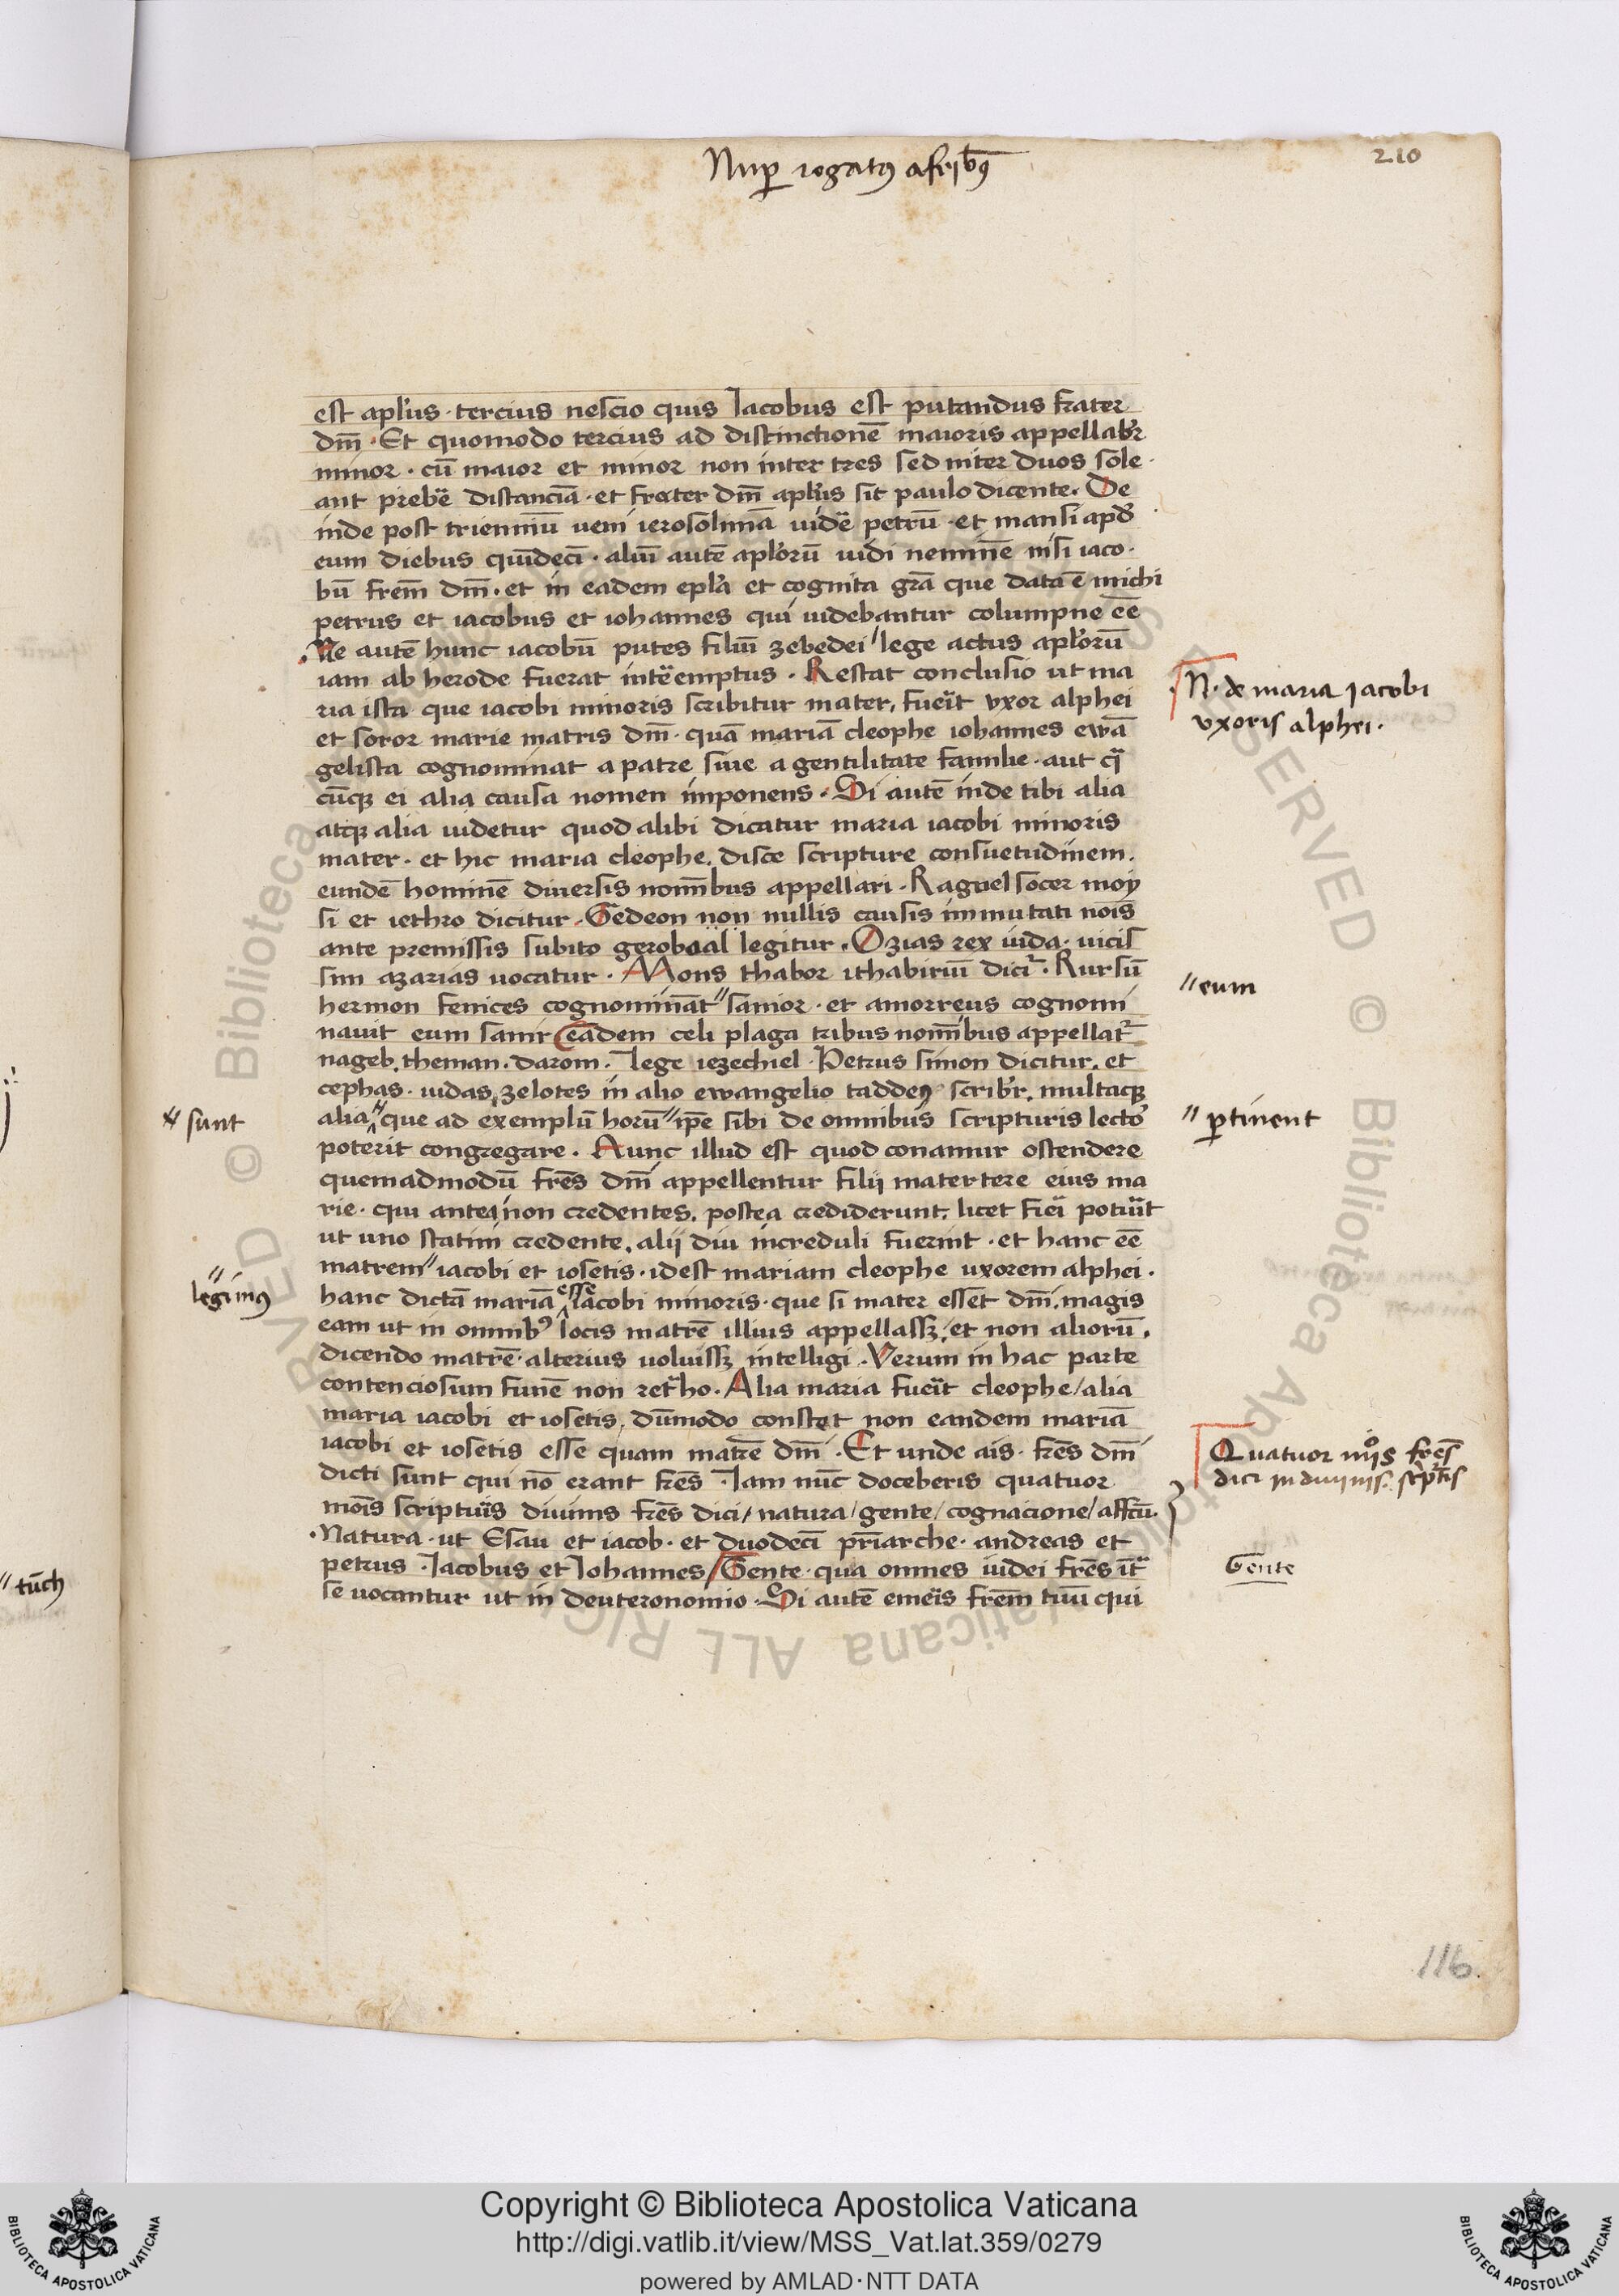 Nup rogatꝰ afribꝰ
210
est aplus · tercius nescio quis Iacobus est putandus frater
dm̄ · Et quomodo tercius ad distinctionē maioris appellabr
minor · cū maior et minor non inter tres sed inter duos sole
ant prebē distanciā · et frater dm̄ aplus sit paulo dicente. De
inde post trienniū veni ierosolimā uidē petrū · et mansi apd
eum diebus qundeci · aliū autē aplorū uidi neminē nisi iaco
bū frem̄ dm̄. et in eadem epla et cognita grā que data ē michi
petrus et iacobus et iohannes qui uidebantur columpne eē
Ne autē hunc iacobū putes filiū zebedei / lege actus aplorū
iam ab herode fuerat intēemptus . Restat conclusio ut ma
ria ista que iacobi minoris scribitur mater, fueit vxor alphei
et soror marie matris dm̄ · quā mariā cleophe iohannes ewā
gelista cognominat a patre siue a gentilitate familie · aut q̄
cūqꝫ ei alia causa nomen imponens . Si autē inde tibi alia
atqꝫ alia uidetur quod alibi dicatur maria iacobi minoris
mater · et hic maria cleophe. disce scripture consuetudinem.
eundē hominē diuersis nomībus appellari . Raguel socer moy
si et iethro dicitur . Gedeon non nullis causis immutati nois
ante premissis subito gerobaal legitur . Ozias rex iuda · uicis
sim azarias uocatur . Mons thabor ithabiriū dicir̄ . Rursū
hermon fenices cognominat̄ʺ sanior · et amorreus cognomi
nauit eum sanir eadem celi plaga tribus nomībus appellatr̄
nageb. theman. darom. lege iezechiel . Petrus simon dicitur. et
cephas · iudas zelotes in alio ewangelio taddeꝰ scribr̄. multaqꝫ
alia que ad exemplū horūʺ ipē sibi de omnibus scripturis lecto
poterit congregare . Nunc illud est quod conamur ostendere
quemadmodū fres̄ dm̄ appellentur filij matertere eius ma
rie · qui antea non credentes. postea crediderunt. licet fiei potuit
ut uno statim credente, alij diu increduli fuerint · et hanc eē
matremʺ iacobi et iosetis · idest mariam cleophe uxorem alphei .
hanc dictā mariā esse iacobi minoris · que si mater esset dm̄. magis
eam ut in omnibꝰ locis matrē illius appellassꝫ, et non aliorū .
dicendo matrē · alterius uoluissꝫ intelligi . Verum in hac parte
contenciosum funē non retho . Alia maria fueit cleophe / alia
maria iacobi et iosetis, dūmodo constet non eandem mariā
iacobi et iosetis esse quam matrē dm̄ . Et unde ais · fres̄ dm̄
dicti sunt qui nō erant fres̄ . Iam nūc doceberis quatuor
mois scripturis diuinis fres̄ dici / natura / gente / cognacione / affcū.
Natura · ut Esau et iacob · et duodeci priarche · andreas et
petrus . Iacobus et Iohannes / Gente · qua omnes iudei fres̄ it
se uocantur ut in deuteronomio . Si autē emeis frem̄ tuū qui
N. de maria iacobi
vxoris alphei.
ʺ eum
ʺ sunt
ʺ ptinent
legimꝰ
Quatuor mois fres̄
dici in diuinis. scptis
Gente
ʺ tūch
116.
Copyright © Biblioteca Apostolica Vaticana
http://digi.vatlib.it/view/MSS_Vat.lat.359/0279
powered by AMLAD·NTT DATA
BIBLIOTECA APOSTOLICA VATICANA
BIBLIOTECA APOSTOLICA VATICANA